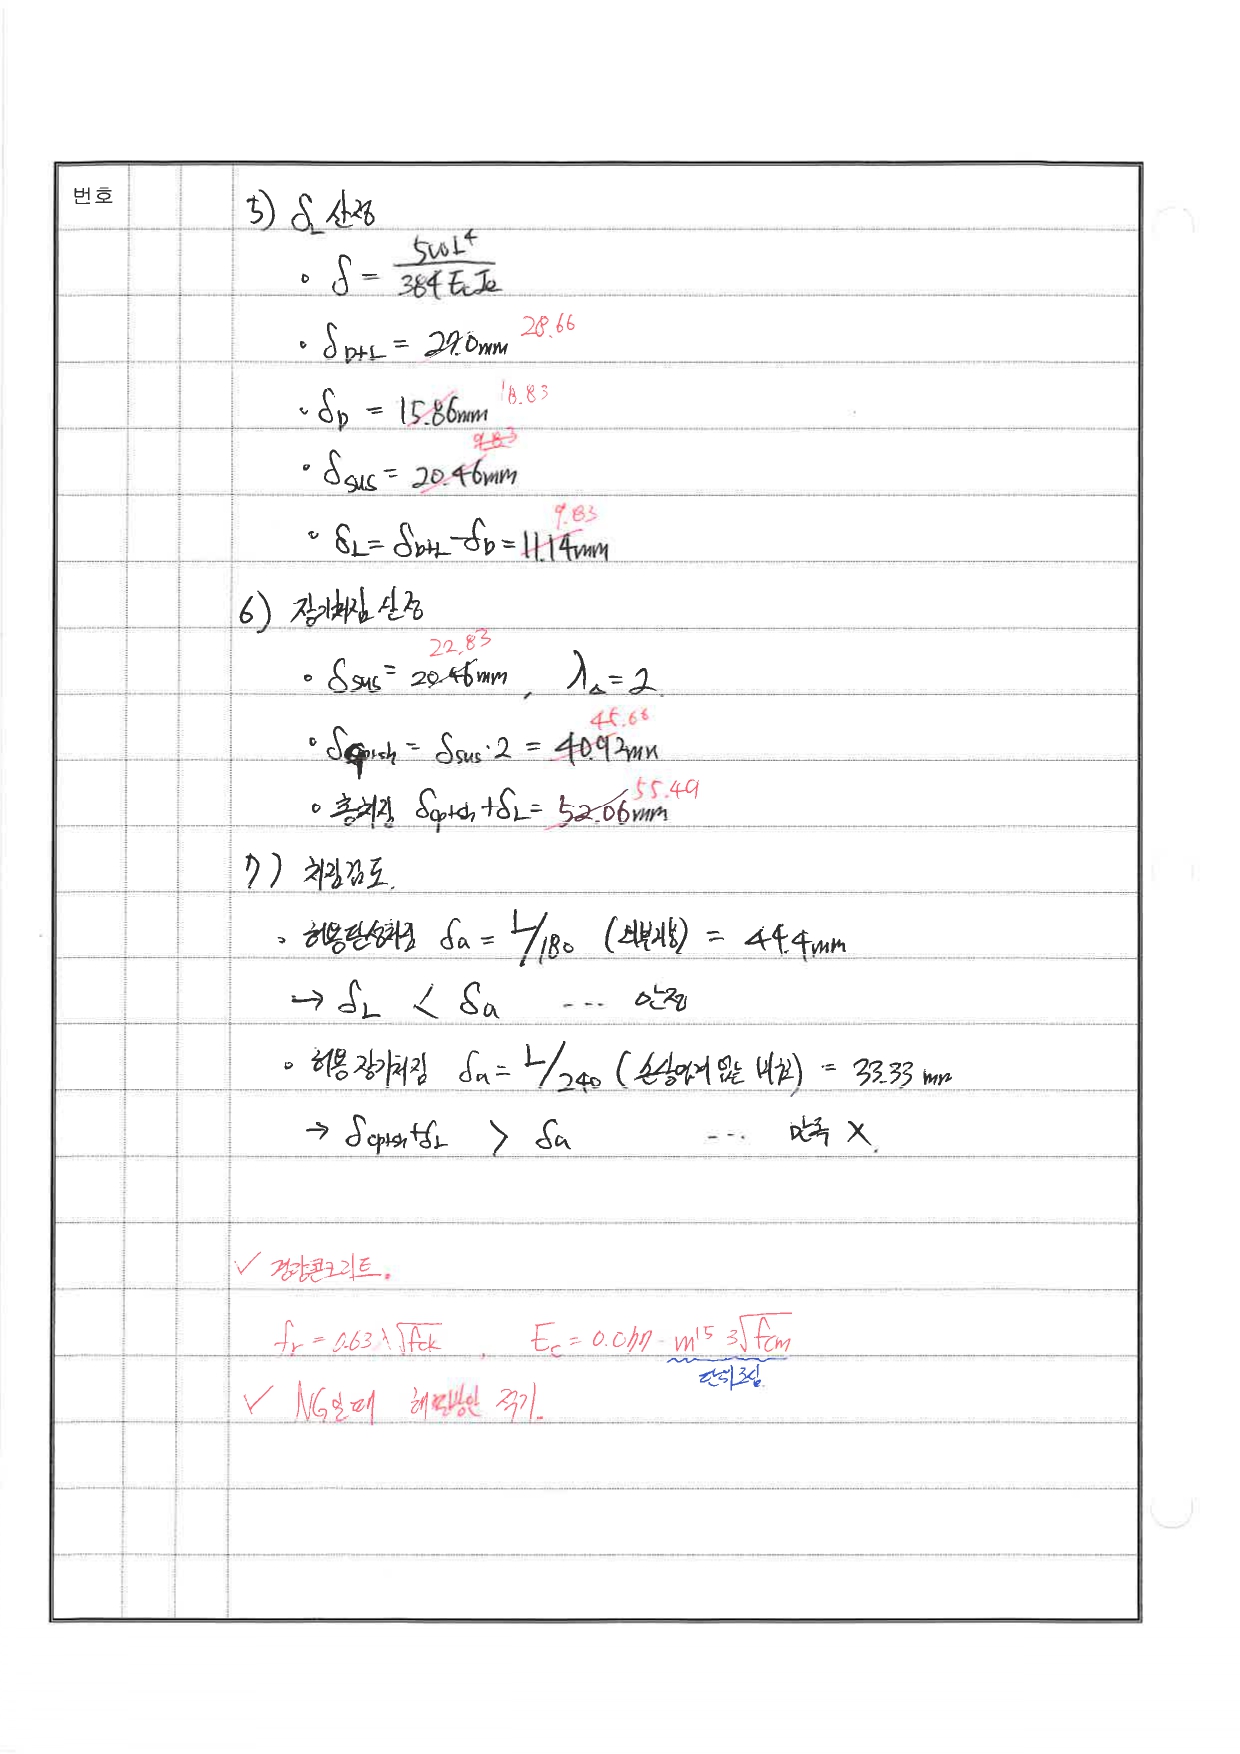 번호
5) δL 산정
∘ δ = 5ωL⁴ / 384 EcIe
∘ δD+L = 27.0mm 28.66
∘ δD = 15.86mm 18.83
∘ δsus = 20.46mm 9.83
∘ δL = δD+L - δD = 11.14mm 9.83
6) 장기처짐 산정
∘ δsus = 20.46mm 22.83 , λΔ = 2
∘ δcp+sh = δsus · 2 = 40.92mm 45.66
∘ 총처짐 δcp+sh + δL = 52.06mm 55.49
7) 처짐검토.
∘ 허용탄성처짐 δa = L/180 (외부지붕) = 44.4mm
→ δL < δa --- 만족
∘ 허용장기처짐 δa = L/240 (손상염려 없는 비구조) = 33.33 mm
→ δcp+sh + δL > δa --- 만족 X.
✓ 경량콘크리트.
fr = 0.63λ√fck , Ec = 0.077 · m¹·⁵ ³√fcm
단위조심
✓ NG일때 해결방안 적기.